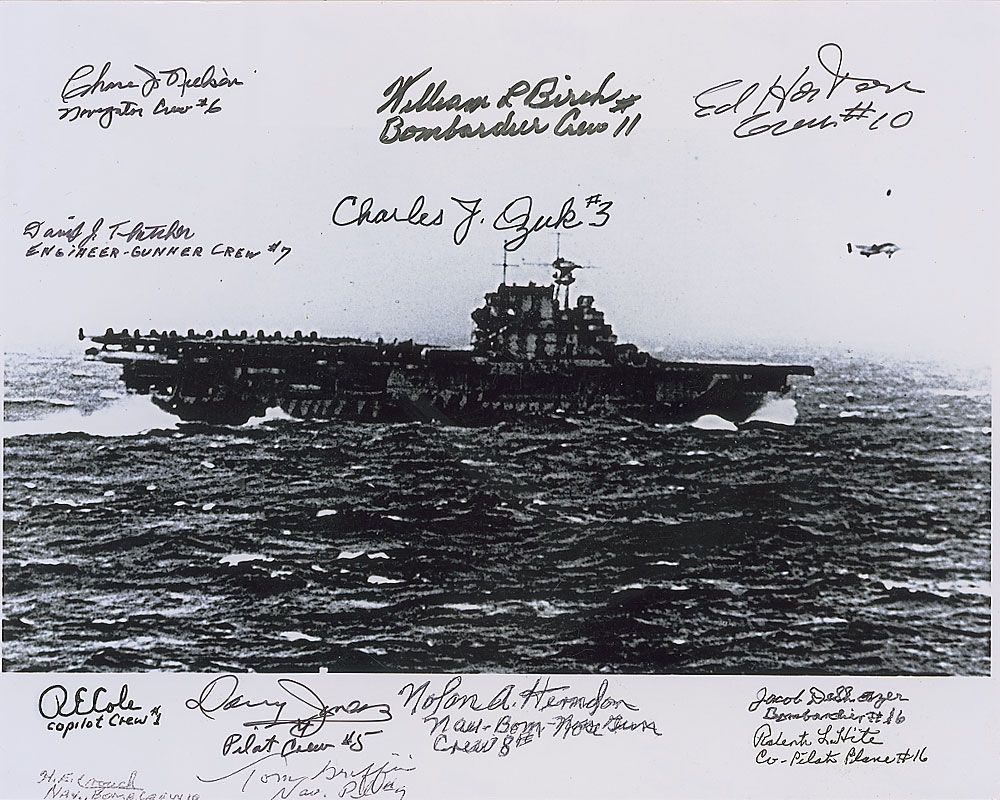 Chase J. Nielsen
Navigator Crew #6
William L Birch
Bombardier Crew #11
Ed Horton
Crew #10
David J. Thatcher
ENGINEER-GUNNER CREW #7
Charles J. Ozuk #3
R E Cole
copilot Crew #1
Davy Jones
Pilot Crew #5
Nolan A. Herndon
Nav-Bom-
Crew 8
Jacob DeShazer
Bombardier #16
Robert L. Hite
Co-Pilot Plane #16
H.E. Crouch
Nav., Bomb. Crew 10
Tom Griffin
Nav.